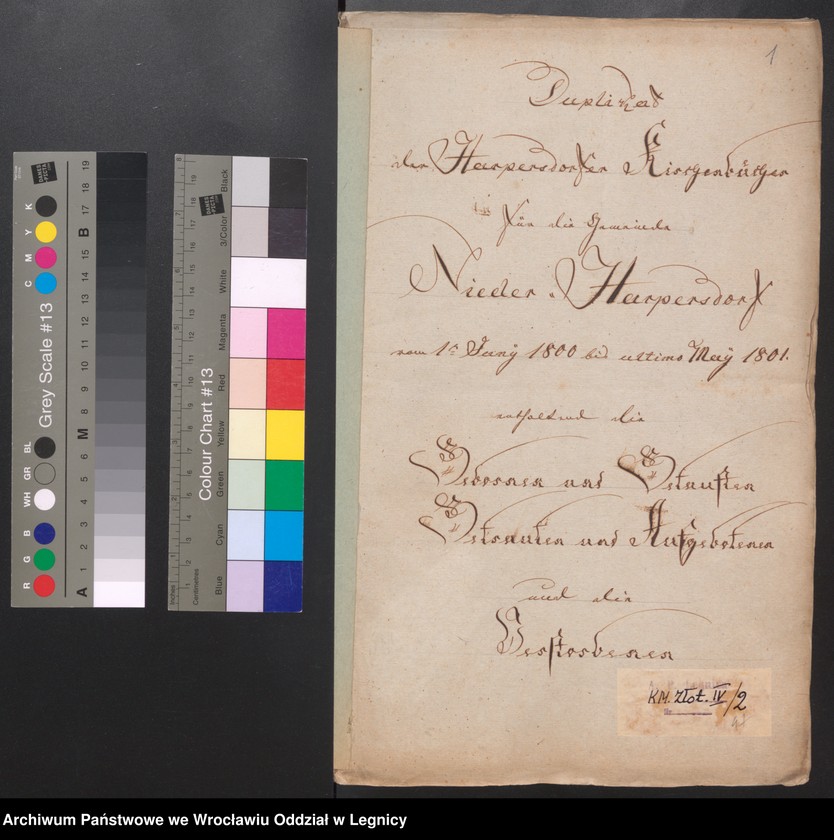 1
Duplicat
der Harpersdorfer Kirchenbücher
für die Gemeinde
Nieder Harpersdorf
vom 1t Juny 1800 bis ultimo May 1801.
enthaltend die
Gebornen und Getauften
Getrauten und Aufgebotenen
und die
Verstorbenen
KM. Złot. IV/2
Grey Scale #13
C M Y K
WH GR BL
R G B
A 1 2 3 4 5 6 M 8 9 10 11 12 13 14 15 B 17 18 19
Colour Chart #13
Blue Cyan Green Yellow Red Magenta White 3/Color Black
Inches
Centimetres
DANES PICTA
DANES PICTA
Archiwum Państwowe we Wrocławiu Oddział w Legnicy